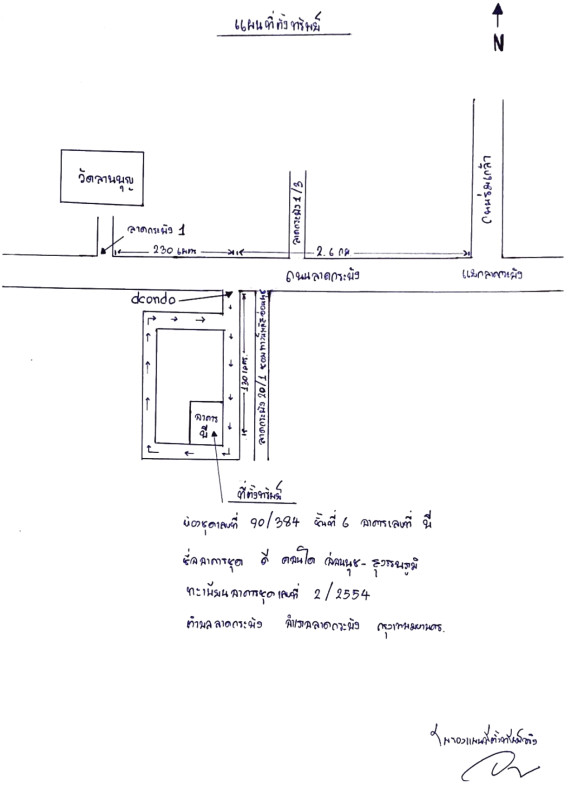 แผนที่ตั้งทรัพย์
N
วัดลานบุญ
ลาดกระบัง 1
ลาดกระบัง 1/3
ถนนร่มเกล้า
230 เมตร
2.6 กม
ถนนลาดกระบัง
แยกลาดกระบัง
dcondo
130 เมตร
ลาดกระบัง 20/1
อาคาร
บี
ที่ตั้งทรัพย์
ห้องชุดเลขที่ 90/384 ชั้นที่ 6 อาคารเลขที่ บี
ชื่ออาคารชุด ดี คอนโด อ่อนนุช-สุวรรณภูมิ
ทะเบียนอาคารชุดเลขที่ 2/2554
ตำบลลาดกระบัง อำเภอลาดกระบัง กรุงเทพมหานคร.